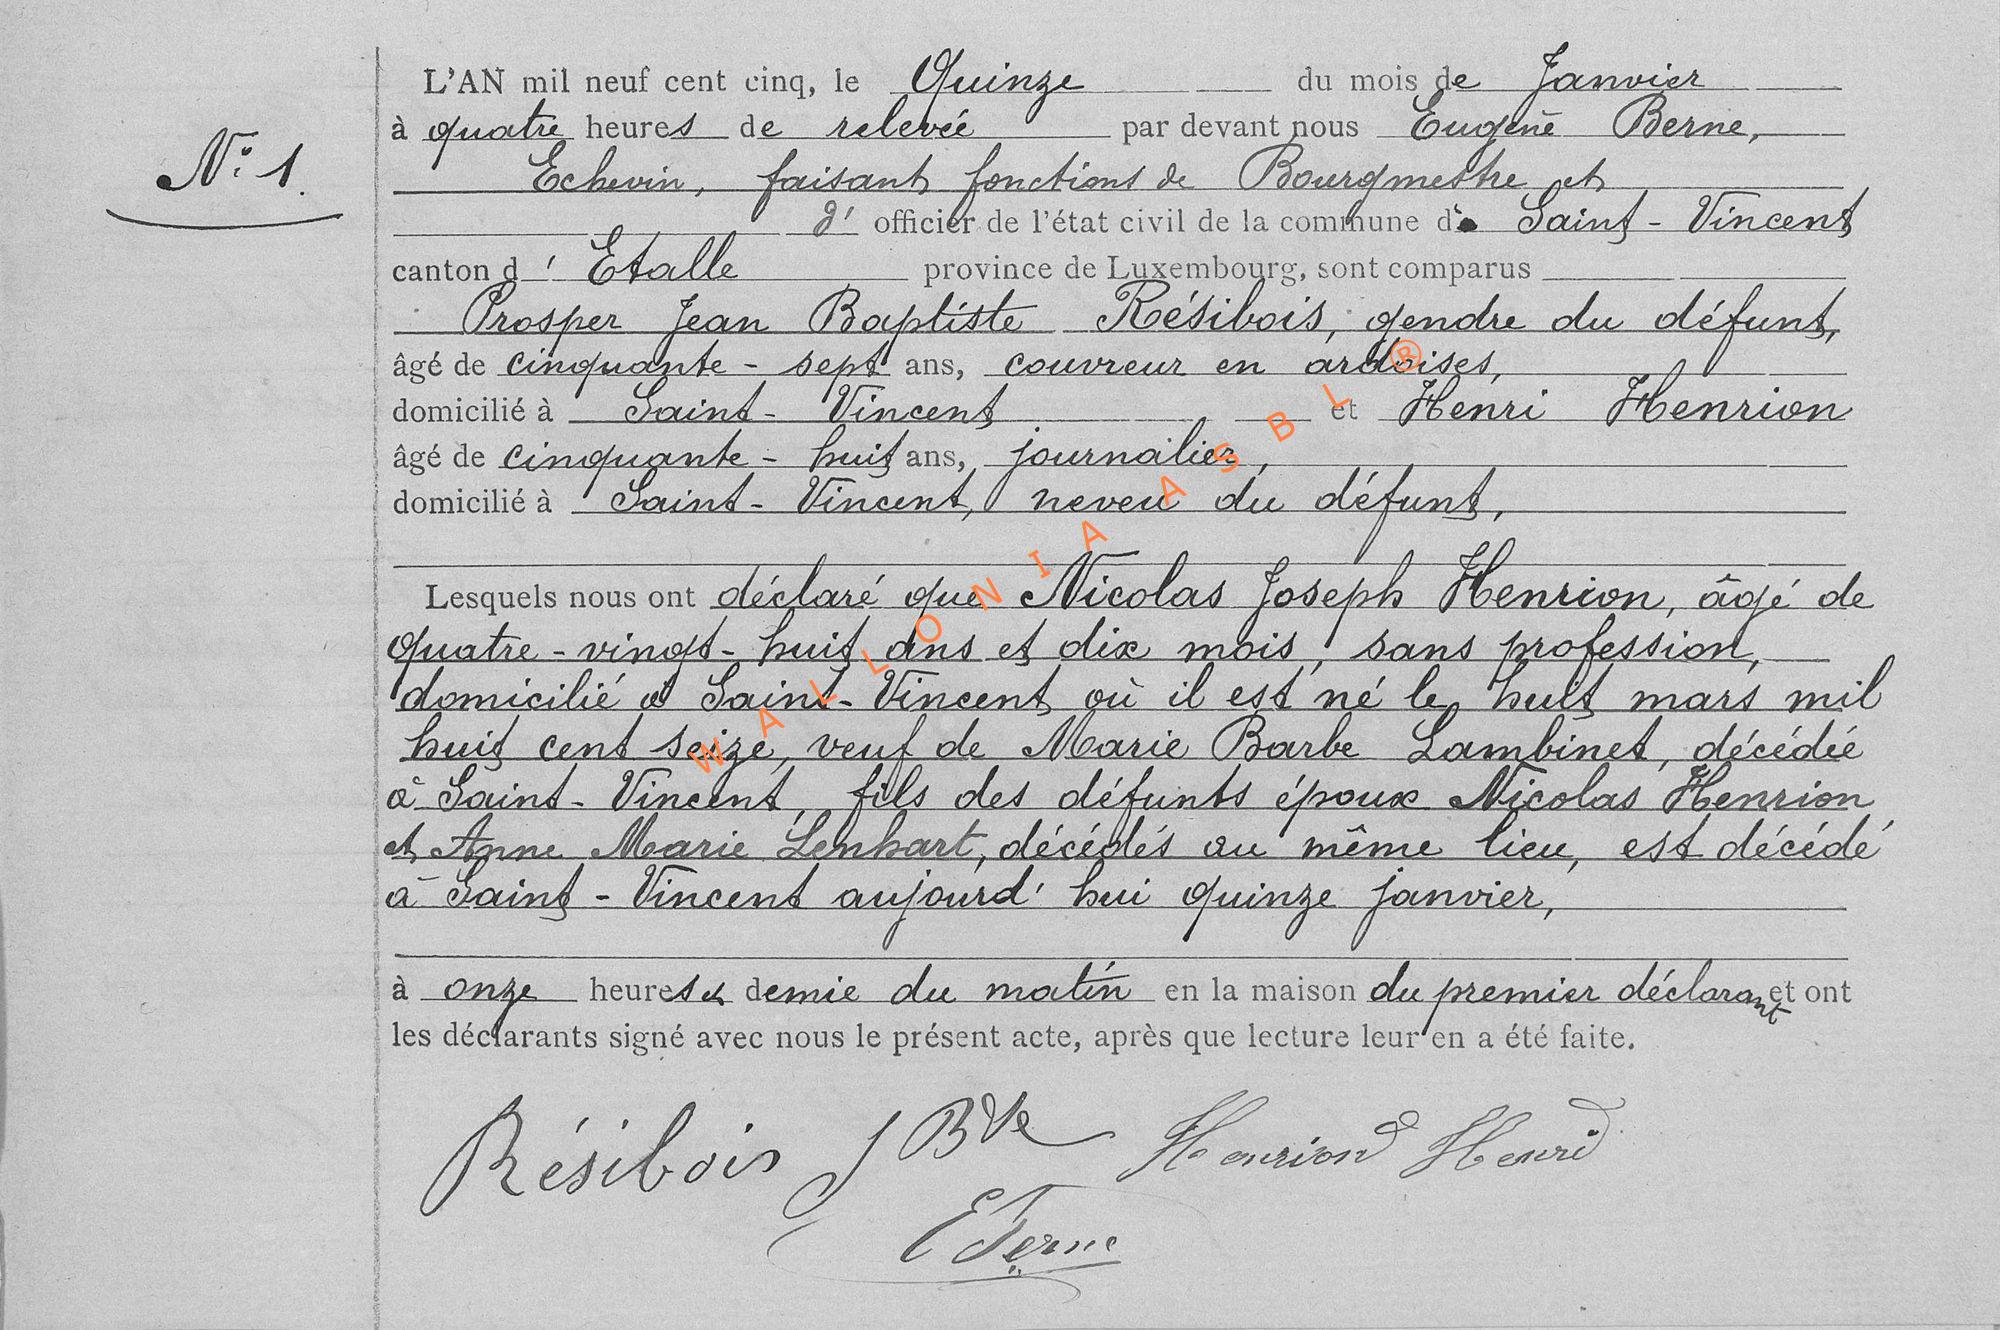 N° 1.
L'AN mil neuf cent cinq, le Quinze du mois de Janvier
à quatre heures de relevée par devant nous Eugène Berne,
Echevin, faisant fonctions de Bourgmestre et
d' officier de l'état civil de la commune de Saint-Vincent
canton d'Etalle province de Luxembourg, sont comparus
Prosper Jean Baptiste Résibois, gendre du défunt,
âgé de cinquante-sept ans, couvreur en ardoises,
domicilié à Saint-Vincent et Henri Henrion
âgé de cinquante-huit ans, journalier,
domicilié à Saint-Vincent, neveu du défunt,
Lesquels nous ont déclaré que Nicolas Joseph Henrion, âgé de
quatre-vingt-huit ans et dix mois, sans profession,
domicilié à Saint-Vincent où il est né le huit mars mil
huit cent seize, veuf de Marie Barbe Lambinet, décédée
à Saint-Vincent, fils des défunts époux Nicolas Henrion
et Anne Marie Lenhart, décédés au même lieu, est décédé
à Saint-Vincent aujourd'hui quinze janvier,
à onze heures et demie du matin en la maison du premier déclarant et ont
les déclarants signé avec nous le présent acte, après que lecture leur en a été faite.
Résibois J Bte Henrion Henri
E Berne
WALLONIA ASBL ®